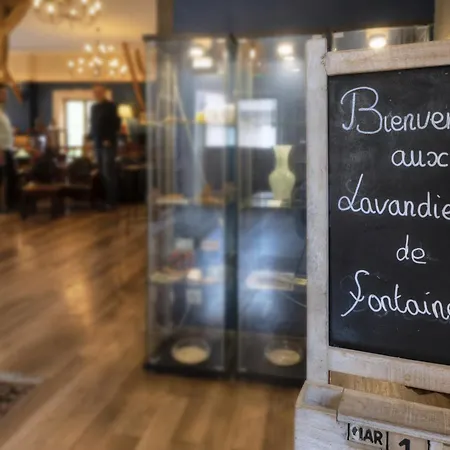 Bienven
aux
Lavandie
de
Fontaine
MAR 1